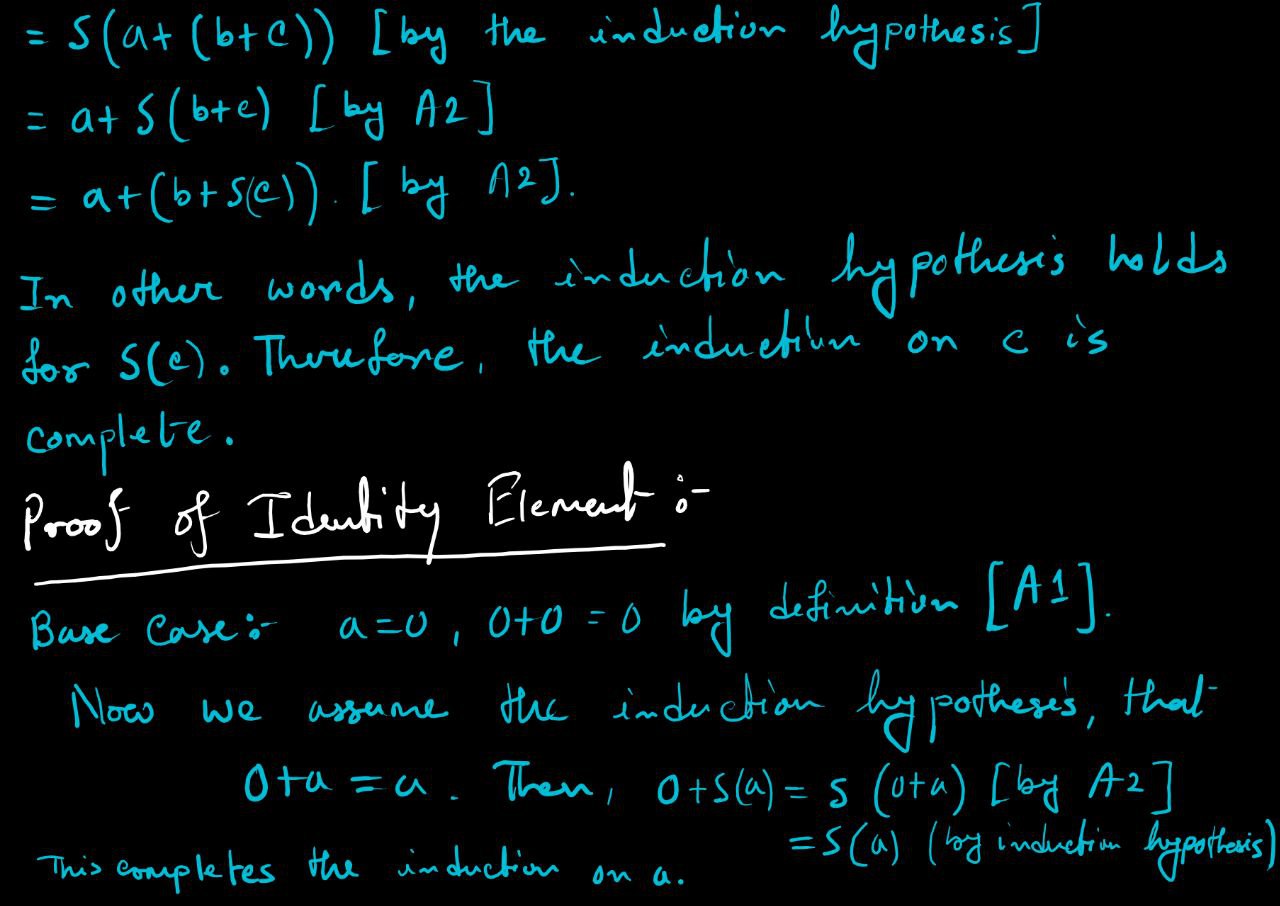 = S(a+(b+c)) [by the induction hypothesis]
= a+S(b+c) [by A2]
= a+(b+S(c)). [by A2].
In other words, the induction hypothesis holds
for S(c). Therefore, the induction on c is
complete.
Proof of Identity Element :-
Base Case :- a=0, 0+0 = 0 by definition [A1].
Now we assume the induction hypothesis, that
0+a = a. Then, 0+S(a) = S(0+a) [by A2]
= S(a) (by induction hypothesis)
This completes the induction on a.